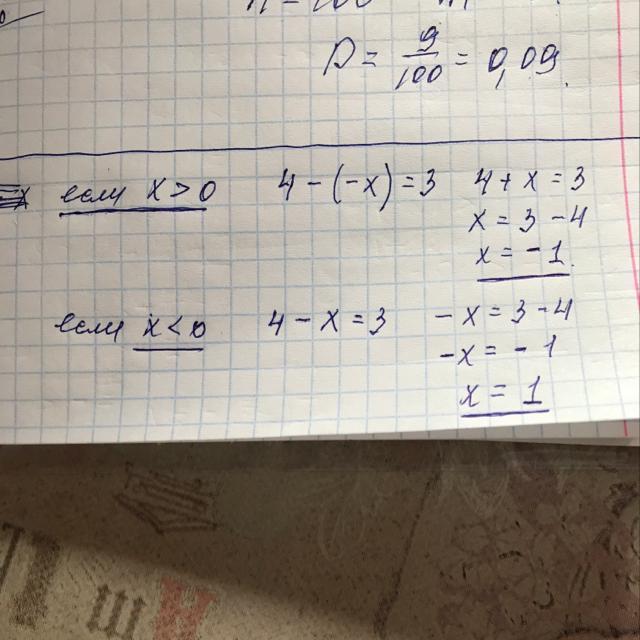 P = 9/100 = 0,09.
если x > 0 4 - (-x) = 3 4 + x = 3
x = 3 - 4
x = -1.
если x < 0 4 - x = 3 - x = 3 - 4
-x = -1
x = 1